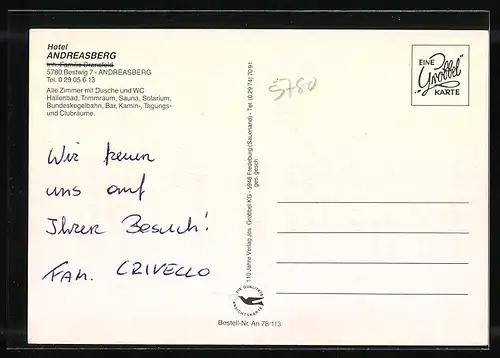 Hotel
ANDREASBERG
Inh. Familie Dransfeld
5780 Bestwig 7 - ANDREASBERG
Tel. 0 29 05/6 13
Alle Zimmer mit Dusche und WC
Hallenbad, Trimmraum, Sauna, Solarium,
Bundeskegelbahn, Bar, Kamin-, Tagungs-
und Clubräume.
Wir freuen
uns auf
Ihren Besuch!
FAM. CRIVELLO
110 Jahre Verlag Jos. Grobbel KG - 5948 Fredeburg (Sauerland) - Tel. (0 29 74) 70 91
ges. gesch.
5780
EINE
"Grobbel"
KARTE
DIE QUALITÄTS
ANSICHTSKARTE
Bestell-Nr. An 78/113